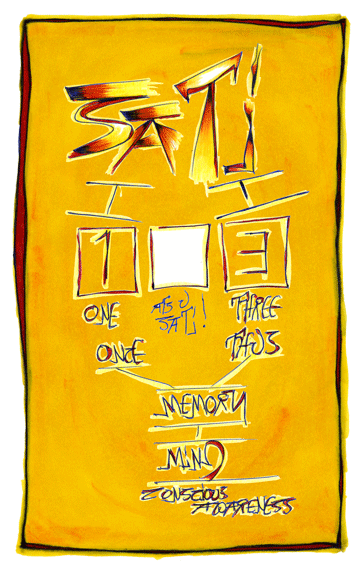 SATI
1 3
ONE
SATI!
THREE
ONCE
THUS
MEMORY
MIND
CONSCIOUS
AWARENESS